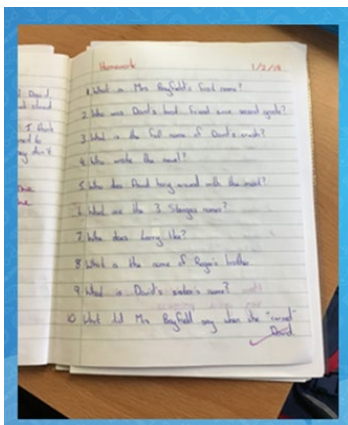 Homework 1/2/18
d David
I think
1. What is Mrs Bayfield's first name?
2. Who was David's best friend since second grade?
3. What is the full name of David's crush?
4. Who wrote the novel?
5. Who does David hang around with the most?
6. What are the 3 Stooges names?
7. Who does Larry like?
8. What is the name of Roger's brother
9. What is David's sister's name?
10 What did Mrs Bayfield say when she "cursed"
David